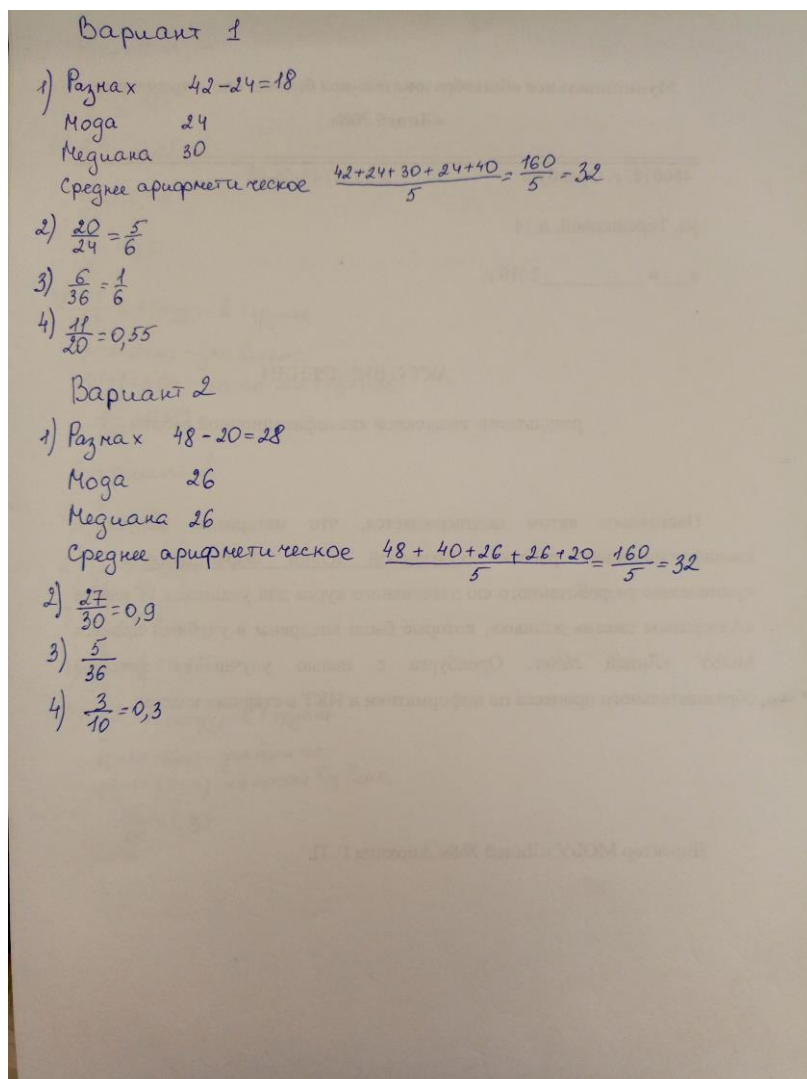 Вариант 1
1) Размах 42-24=18
Мода 24
Медиана 30
Среднее арифметическое (42+24+30+24+40)/5 = 160/5 = 32
2) 20/24 = 5/6
3) 6/36 = 1/6
4) 11/20 = 0,55
Вариант 2
1) Размах 48-20=28
Мода 26
Медиана 26
Среднее арифметическое (48+40+26+26+20)/5 = 160/5 = 32
2) 27/30 = 0,9
3) 5/36
4) 3/10 = 0,3